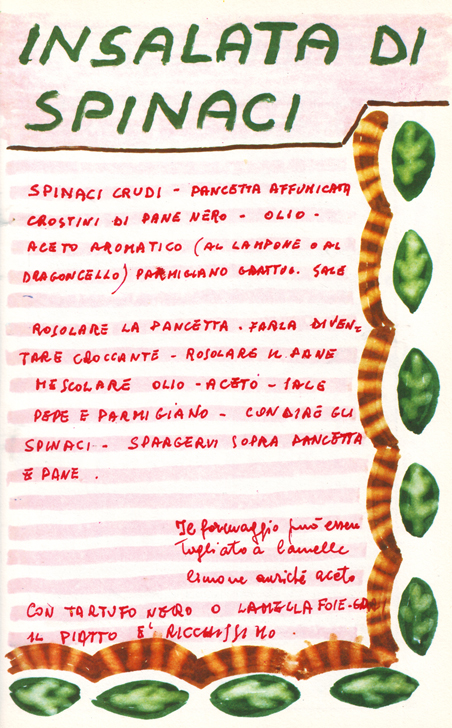 INSALATA DI
SPINACI
SPINACI CRUDI - PANCETTA AFFUMICATA
CROSTINI DI PANE NERO - OLIO -
ACETO AROMATICO (AL LAMPONE O AL
DRAGONCELLO) PARMIGIANO GRATTUG. SALE
ROSOLARE LA PANCETTA. FARLA DIVEN-
TARE CROCCANTE - ROSOLARE IL PANE
MESCOLARE OLIO - ACETO - SALE
PEPE E PARMIGIANO - CONDIRE GLI
SPINACI - SPARGERVI SOPRA PANCETTA
E PANE.
Il formaggio può essere
tagliato a lamelle
limone anziché aceto
CON TARTUFO NERO O LAMELLA FOIE-GRAS
IL PIATTO E' RICCHISSIMO.